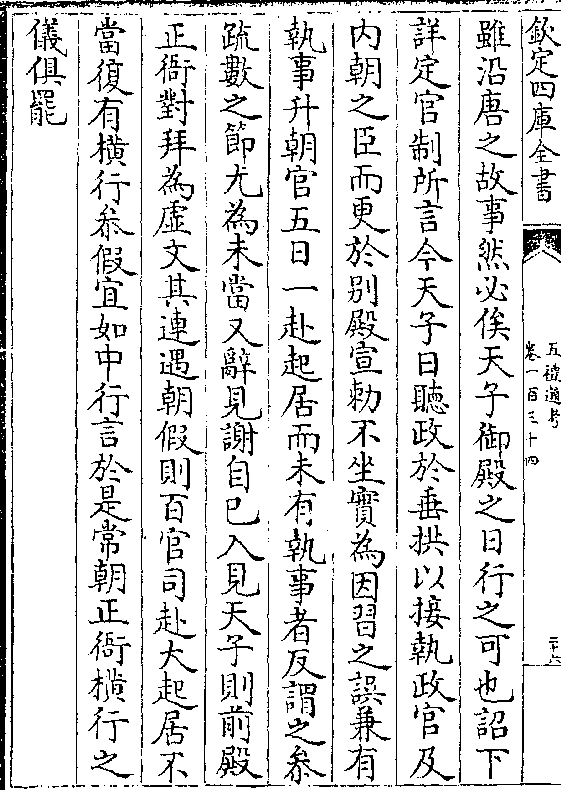 欽定四庫全書
五禮通考
卷一百三十四
二十六
雖沿唐之故事然必俟天子御殿之日行之可也詔下
詳定官制所言今天子日聽政於垂拱以接執政官及
内朝之臣而更於别殿宣勅不坐實為因習之誤兼有
執事升朝官五日一赴起居而未有執事者反謂之叅
疏數之節尤為未當又辭見謝自已入見天子則前殿
正衙對拜為虚文其連遇朝假則百官司赴大起居不
當復有横行叅假宜如中行言於是常朝正衙横行之
儀俱罷